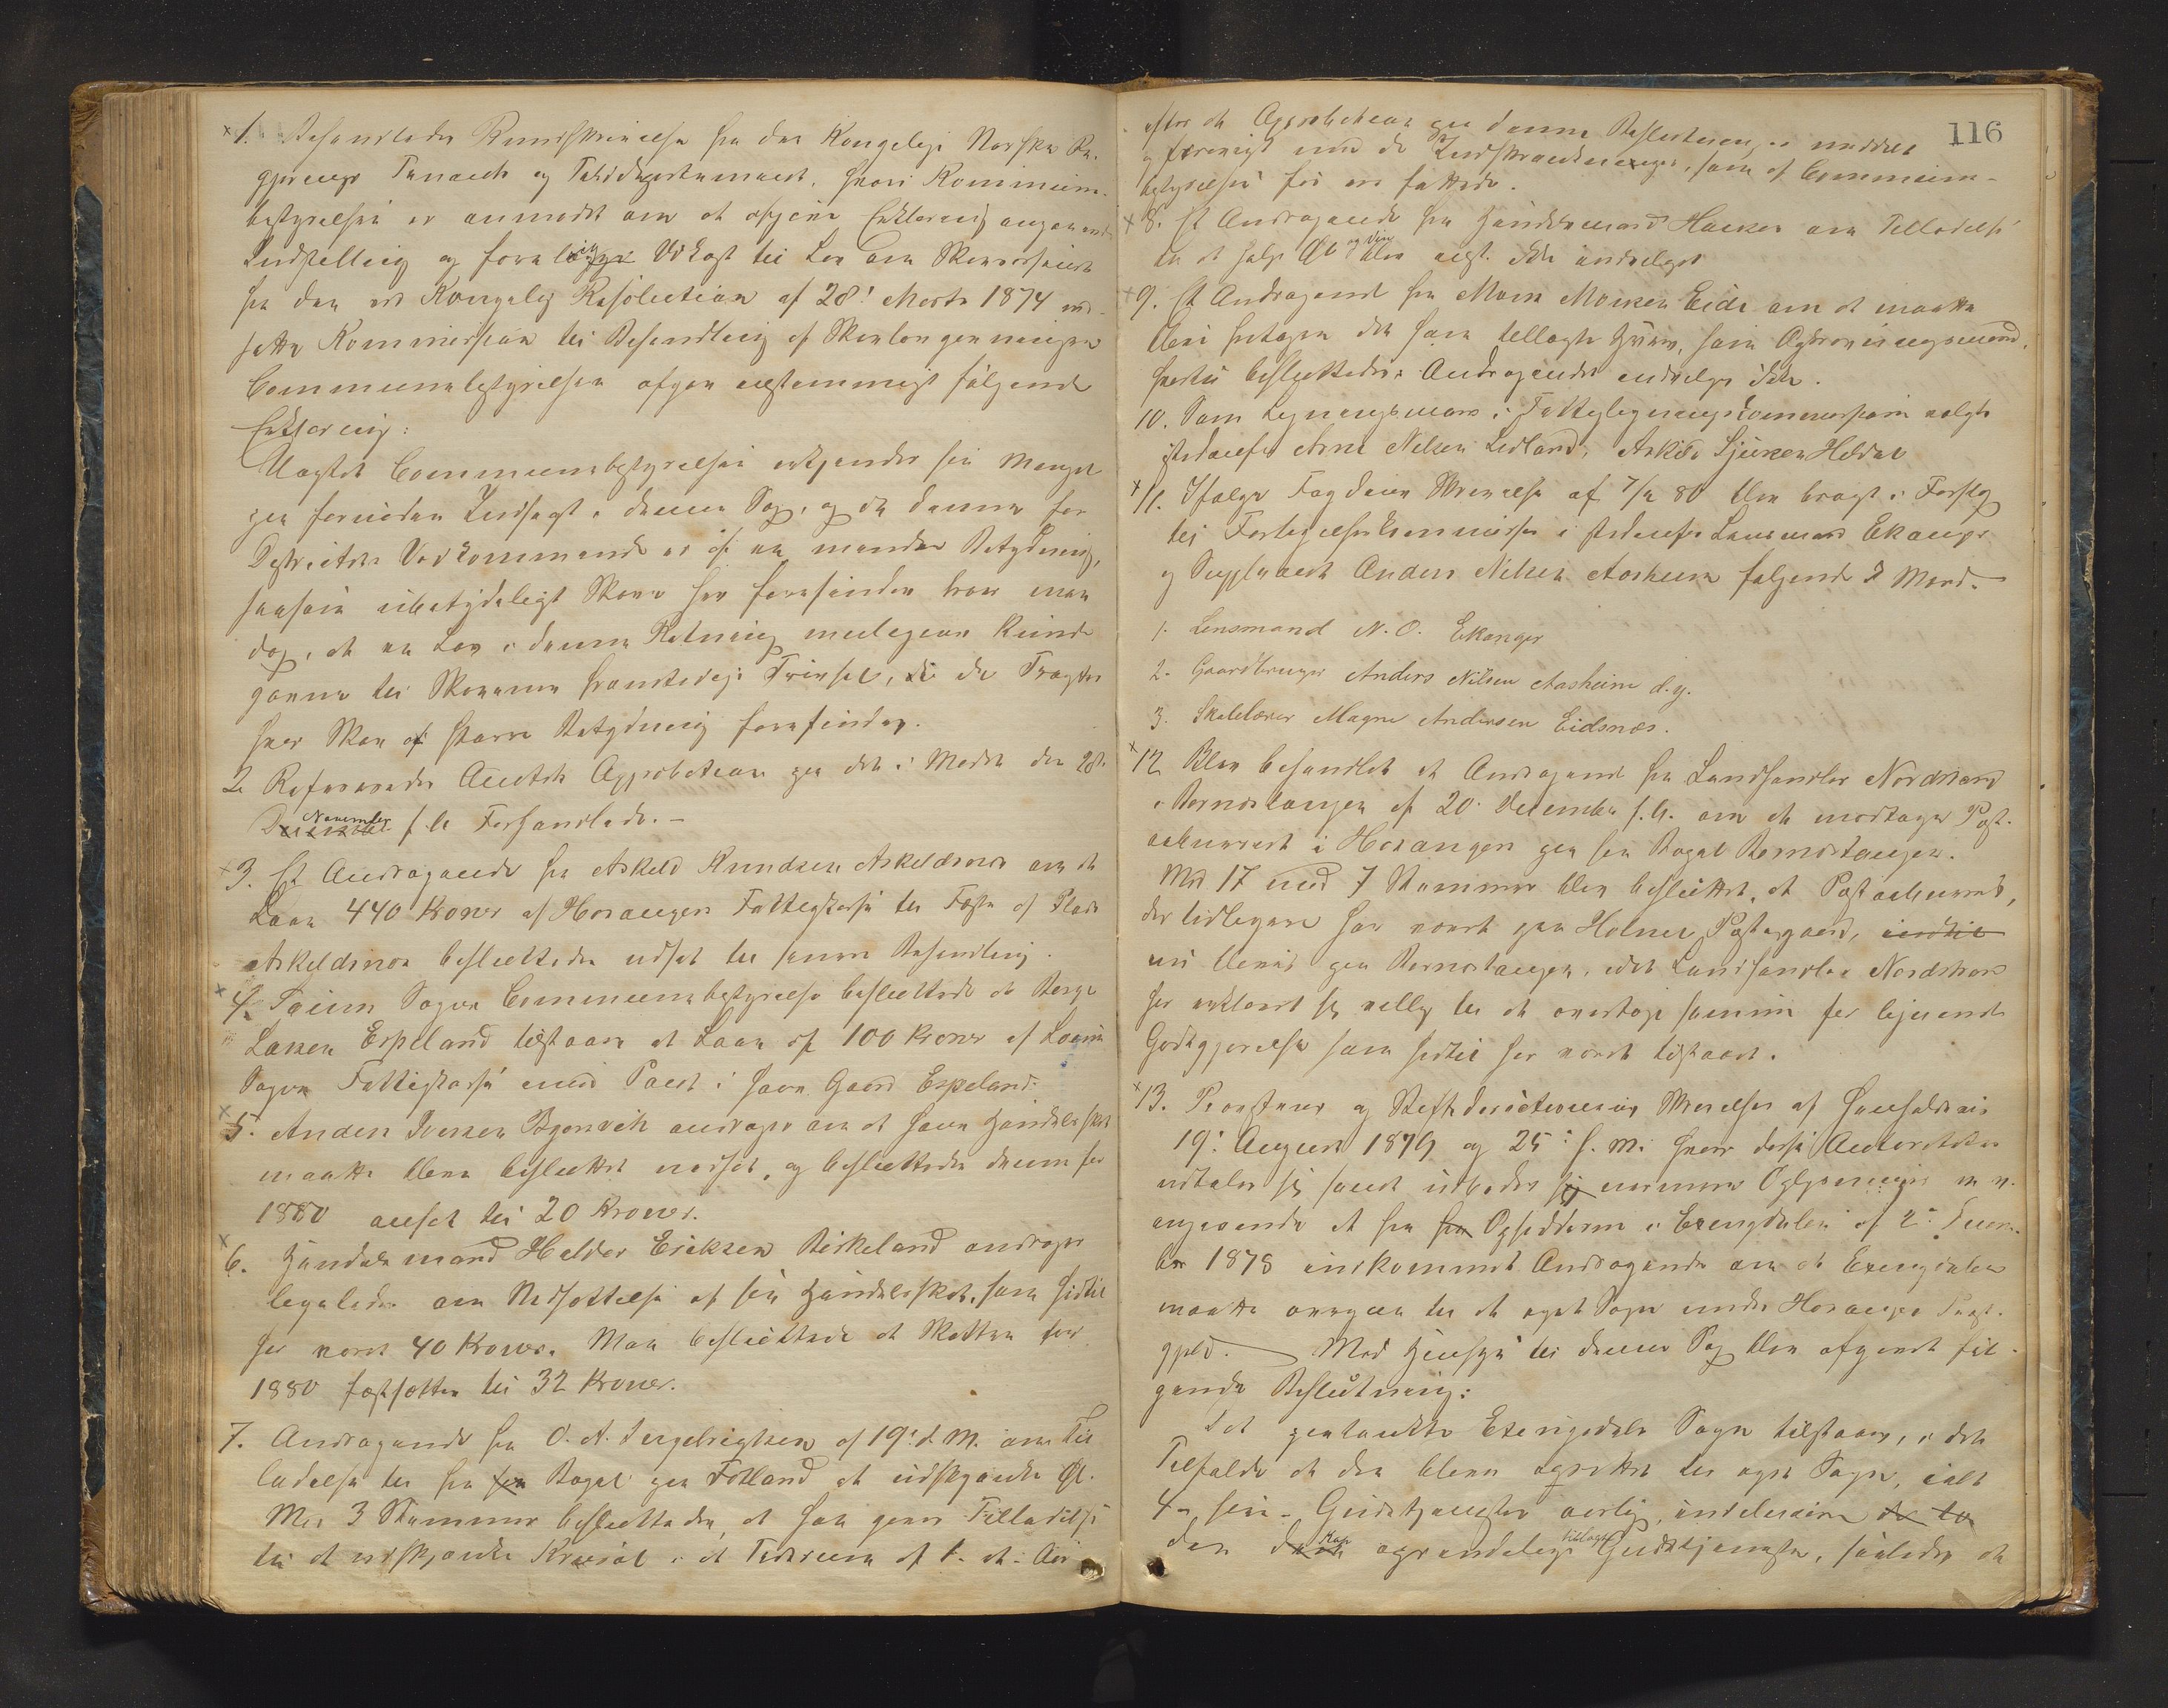 1. Behandledes Rundskrivelse fra det Kongelige Norske Re-
gjerings Finants og Tolddepartement, hvori Kommune-
bestyrelsen er anmodet om at afgive Erklæring angaaende
Indstilling og foreløbigt Udkast til Lov om Skovvæsenet
fra den ved Kongelig Resolution af 28: Marts 1874 ned-
satte Kommission til Behandling af Skovlovgivningen
Communebestyrelsen afgav eenstemmigt følgende
Erklæring:
Uagtet Communebestyrelsen erkjender sin Mangel
paa fornøden Indsigt i denne Sag, og da denne for
Distriktets Vedkommende er af en mindre Betydning,
saasom ubetydeligt Skov her forefindes troer man
dog, at en Lov i denne Retning muligens kunde
gavne til Skovenes fremtidige Trivsel, i de Trakter
hvor Skov af større Betydning forefindes.
2. Refereredes Amtets Approbation paa det i Mødet den 28.
November f. A. Forhandlede. -
3. Et Andragende fra Askeld Knudsen Askeldsnes om et
Laan 440 Kroner af Hosangers Fattigkasse til Fæste af Plads
Askeldsnes besluttedes udsat til senere Behandling.
4. Samme Sogns Communebestyrelse besluttede at Børge
Larsen Espeland tilstaaes et Laan af 100 Kroner af
Sogns Fattigkasse mod Pant i hans Gaard Espeland.
5. Anders Iversen andrager om at hans Handelsskat
maatte blive besluttet nedsat, og besluttedes denne for
1880 ansat til 20 Kroner.
6. Handelsmand Haldor Eriksen Birkeland andrager
ligeledes om Nedsættelse af sin Handelsskat, som hidtil
har været 40 Kroner. Man besluttede at Skatten for
1880 fastsættes til 32 Kroner.
7. Andragende fra O. A. Ingebrigtsen af 19: d. M. om Til
ladelse til fra Bopæl paa Fotland at udskjænke Øl.
Med 3 Stemmer besluttedes, at han gives Tilladelse
til at udskjænke i et Tidsrum af 1. et. Aar
116
efter at Approbation paa denne Beslutning er meddelt
og forøvrigt med de Indskrænkninger, som af Commune-
bestyrelsen før ere fattede.
8. Et Andragende fra Handelsmand Haukaas om Tilladelse
til at sælge Øl og Viin blev eenst. ikke indvilget
9. Et Andragende fra Mons Monsen Eide om at maatte
blive fritagen det ham tillagte Hverv, som Opkrævningsmand,
hvortil besluttedes: Andragendet indvilges ikke.
10. Som Ligningsmand i Fattigligningscommissionen valgte
istedenfor Arne Nilsen Leiland, Askild Sjursen Heldal
11. Ifølge Fogdens Skrivelse af 7/1 80 blev bragt i Forslag
til Forligelseskommissær i stedenfor Lensmand Ekanger
og Suppleant Anders Nilsen Aasheim følgende 3 Mænd.
1. Lensmand N. O. Ekanger
2. Gaardbruger Anders Nilsen Aasheim d. y.
3. Skolelærer Magne Andersen Eidsnæs.
12 Blev behandlet et Andragende fra Landhandler Nordstrand
i Bernestangen af 20. December f. A. om at modtage Post-
aabneriet i Hosanger paa sin Bopæl Bernestangen.
Med 17 mod 7 Stemmer blev besluttet, at Postaabneriet,
der tidligere har været paa Holmen Præstegaard,
nu bliver paa Bernestangen, idet Landhandler Nordstrand
har erklæret sig villig til at overtage samme for lignende
Godtgjørelse som hidtil har været tilstaaet.
13. Provstens og Stiftsdirectionens Skrivelser af henholdsvis
19: August 1879 og 25: f. M: hvori disse Autoriteter
udtaler sig samt udbeder sig nærmere Oplysninger m. m.
angaaende et fra Opsidderne i Exingdalen af 2: Decem-
ber 1878 indkommet Andragende om at Exingdalen
maatte overgaa til et eget Sogn under Hosanger Præste-
gjeld. Med Hensyn til denne Sag blev afgivet føl-
gende Beslutning:
Det paatænkte Exingdals Sogn tilstaaes, i det
Tilfælde at den bliver oprettet til eget Sogn, ialt
4 - fire - Gudstjenester aarlig, inclusive
den Kap oprindelige tillagte Gudstjeneste, saaledes at